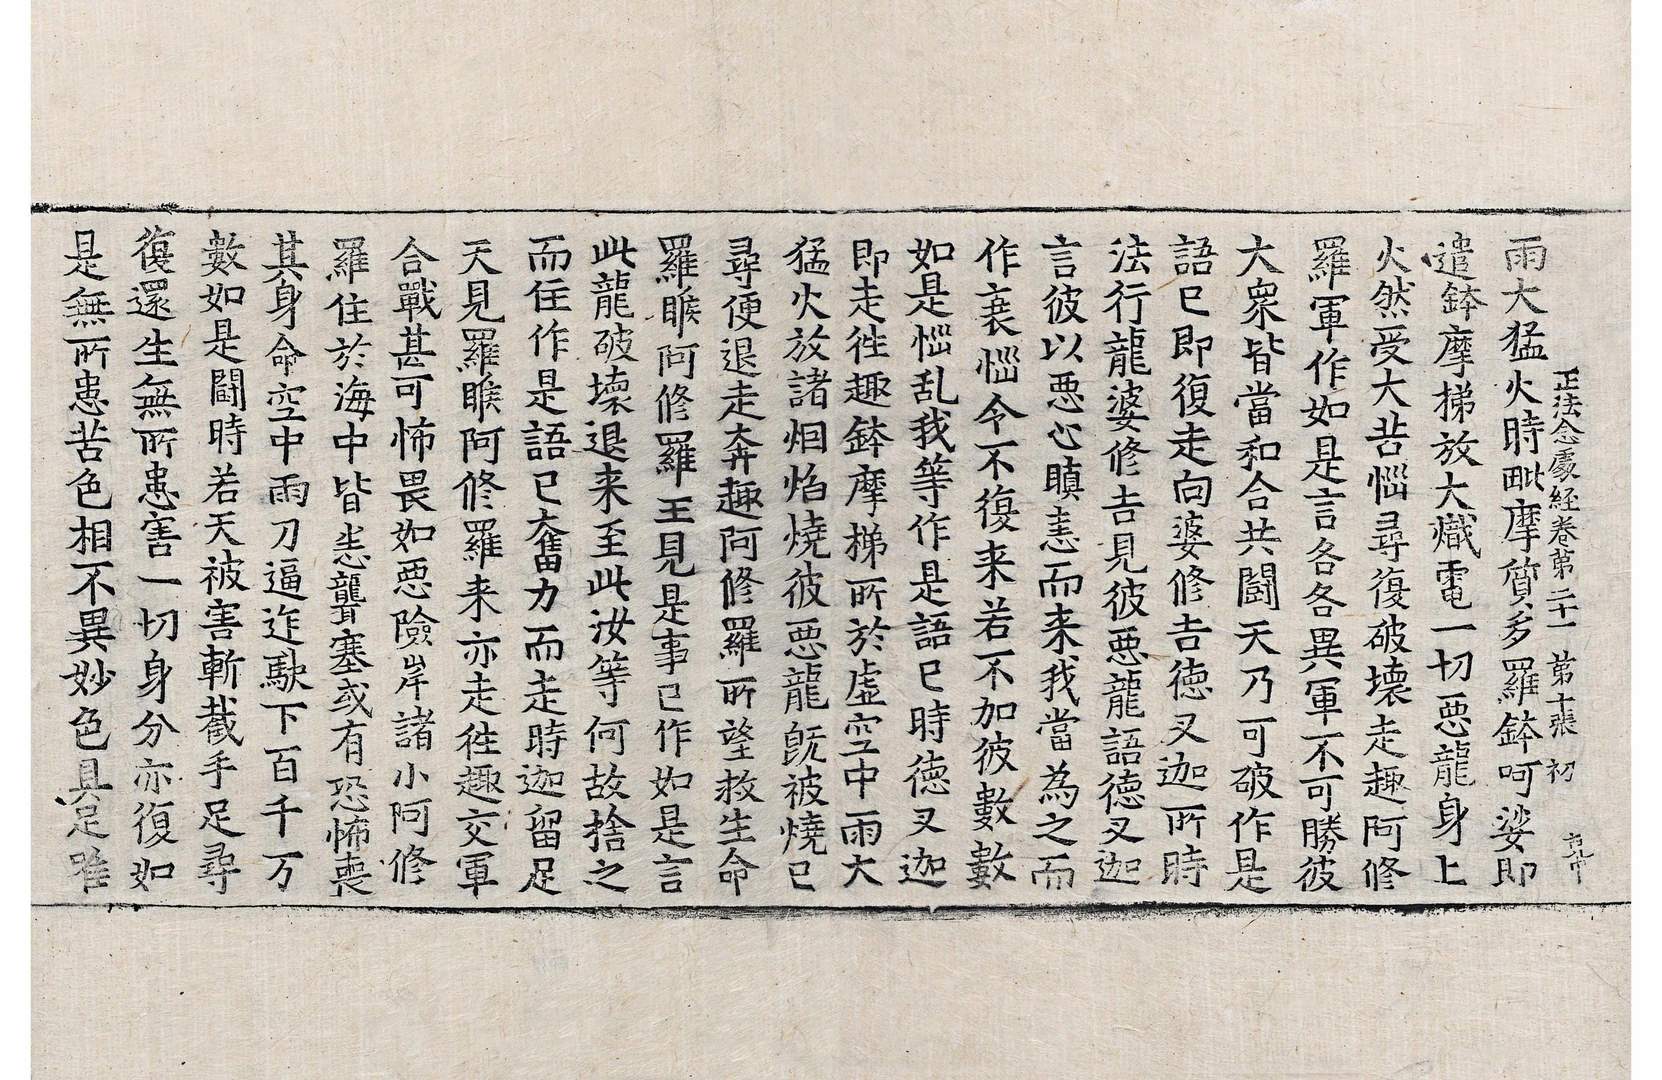 正法念處經卷第二十一 第十張 初
雨大猛火時毗摩質多羅鉢呵娑即
遣鉢摩梯放大熾電一切惡龍身上
火然受大苦惱尋復破壞走趣阿修
羅軍作如是言各各異軍不可勝彼
大衆皆當和合共鬪天乃可破作是
語已即復走向婆修吉德叉迦所時
法行龍婆修吉見彼惡龍語德叉迦
言彼以惡心瞋恚而来我當為之而
作衰惱令不復来若不加彼數數
如是惱乱我等作是語已時德叉迦
即走徃趣鉢摩梯所於虛空中雨大
猛火放諸烟焰燒彼惡龍旣被燒已
尋便退走奔趣阿修羅所望救生命
羅睺阿修羅王見是事已作如是言
此龍破壞退来至此汝等何故捨之
而住作是語已奮力而走時迦留足
天見羅睺阿修羅来亦走徃趣交軍
合戰甚可怖畏如惡險岸諸小阿修
羅住於海中皆悉聾塞或有恐怖喪
其身命空中雨刀逼迮駛下百千万
數如是鬪時若天被害斬截手足尋
復還生無所患害一切身分亦復如
是無所患苦色相不異妙色具足唯